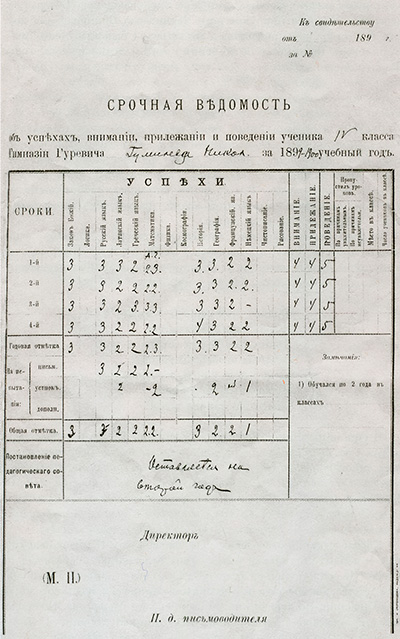 Къ свидѣтельству
отъ 189 г.
за №
СРОЧНАЯ ВѢДОМОСТЬ
объ успѣхахъ, вниманіи, прилежаніи и поведеніи ученика IV класса
Гимназіи Гуревича Гумилева Никол. за 1899-900 учебный годъ.
СРОКИ. УСПѢХИ. ВНИМАНІЕ. ПРИЛЕЖАНІЕ. ПОВЕДЕНІЕ. Мѣсто въ классѣ. Число учениковъ въ классѣ.
Законъ Божій. Логика. Русскій языкъ. Латинскій языкъ. Греческій языкъ. Математика. Физика. Космографія. Исторія. Географія. Французскій яз. Нѣмецкій языкъ. Чистописаніе. Рисованіе.
1-й 3 3 3 2 2.3. 3. 3. 2 2 4 4 5
2-й 3 3 2 2 2.2. 3. 3 2. 2. 4 4 5
3-й 3 3 2 3. 3.3. 3 3 2 - 4 4 5
4-й 3 3 2 2 2.2 4 3 2 2 4 4 5
Годовая отмѣтка 3 3 2 2 2.3. 3. 3 2 2
На испытаніи:
письм. 3 2 2 2.-
устном. 2 -2 2 1
дополн.
Общая отмѣтка. 3 3 2 2 2.2. 3 2 2 1
Замѣчанія:
1) Обучался по 2 года въ
классахъ
Постановленіе педагогическаго совѣта.
Оставляется на
второй годъ
Директоръ
(М. П.)
И. д. письмоводителя